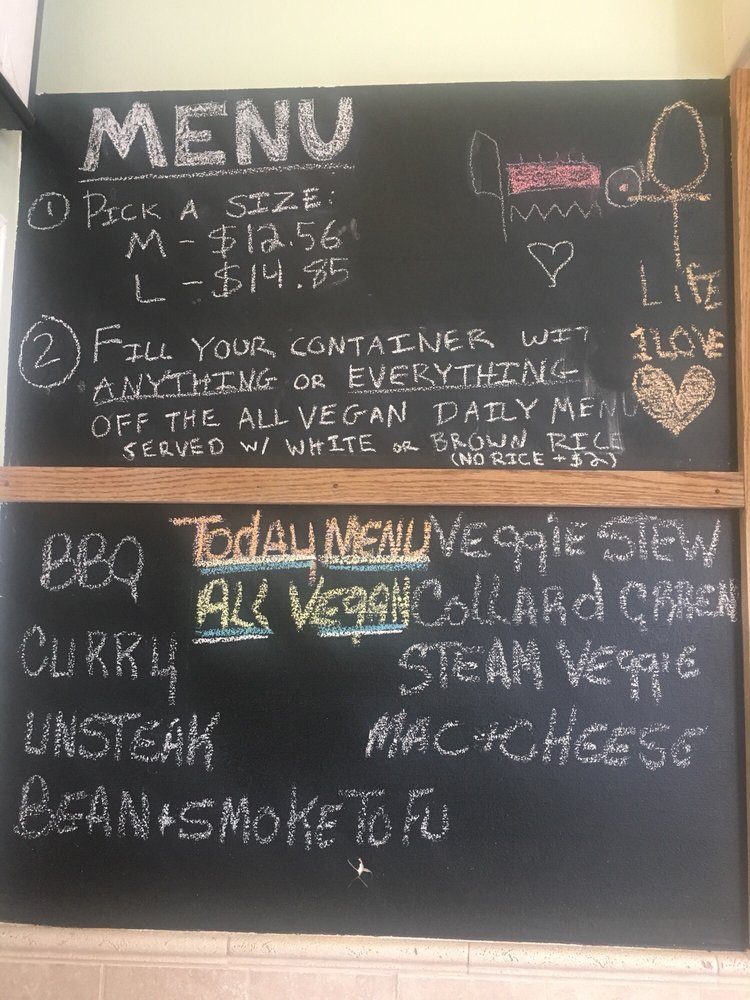 MENU
① PICK A SIZE:
M - $12.56
L - $14.85
LiFE
② FILL YOUR CONTAINER WIT
ANYTHING OR EVERYTHING
OFF THE ALL VEGAN DAILY MENU
SERVED W/ WHITE OR BROWN RICE
(NO RICE + $2)
1LOVE
TodAy MENU
ALL VEgAN
BBQ
CURRy
UNSTEAK
BEAN+SMOKE ToFU
VEggiE STEW
CollARd GREEN
STEAM VEggiE
MAC+CHEESE